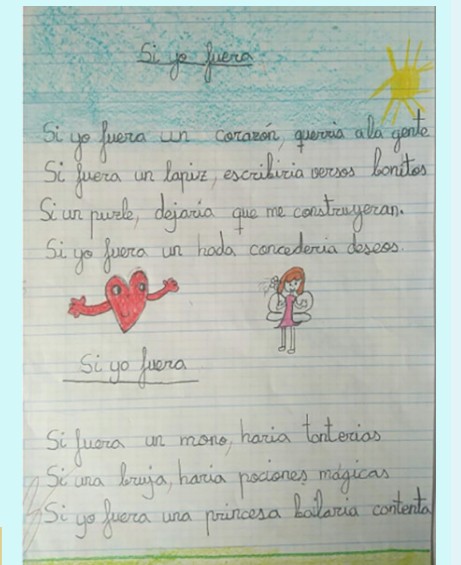 Si yo fuera
Si yo fuera un corazón, querria a la gente
Si fuera un lapiz, escribiria versos bonitos
Si un puzle, dejaria que me construyeran.
Si yo fuera un hada, concederia deseos.
Si yo fuera
Si fuera un mono, haria tonterias
Si una bruja, haria pociones mágicas
Si yo fuera una princesa bailaria contenta